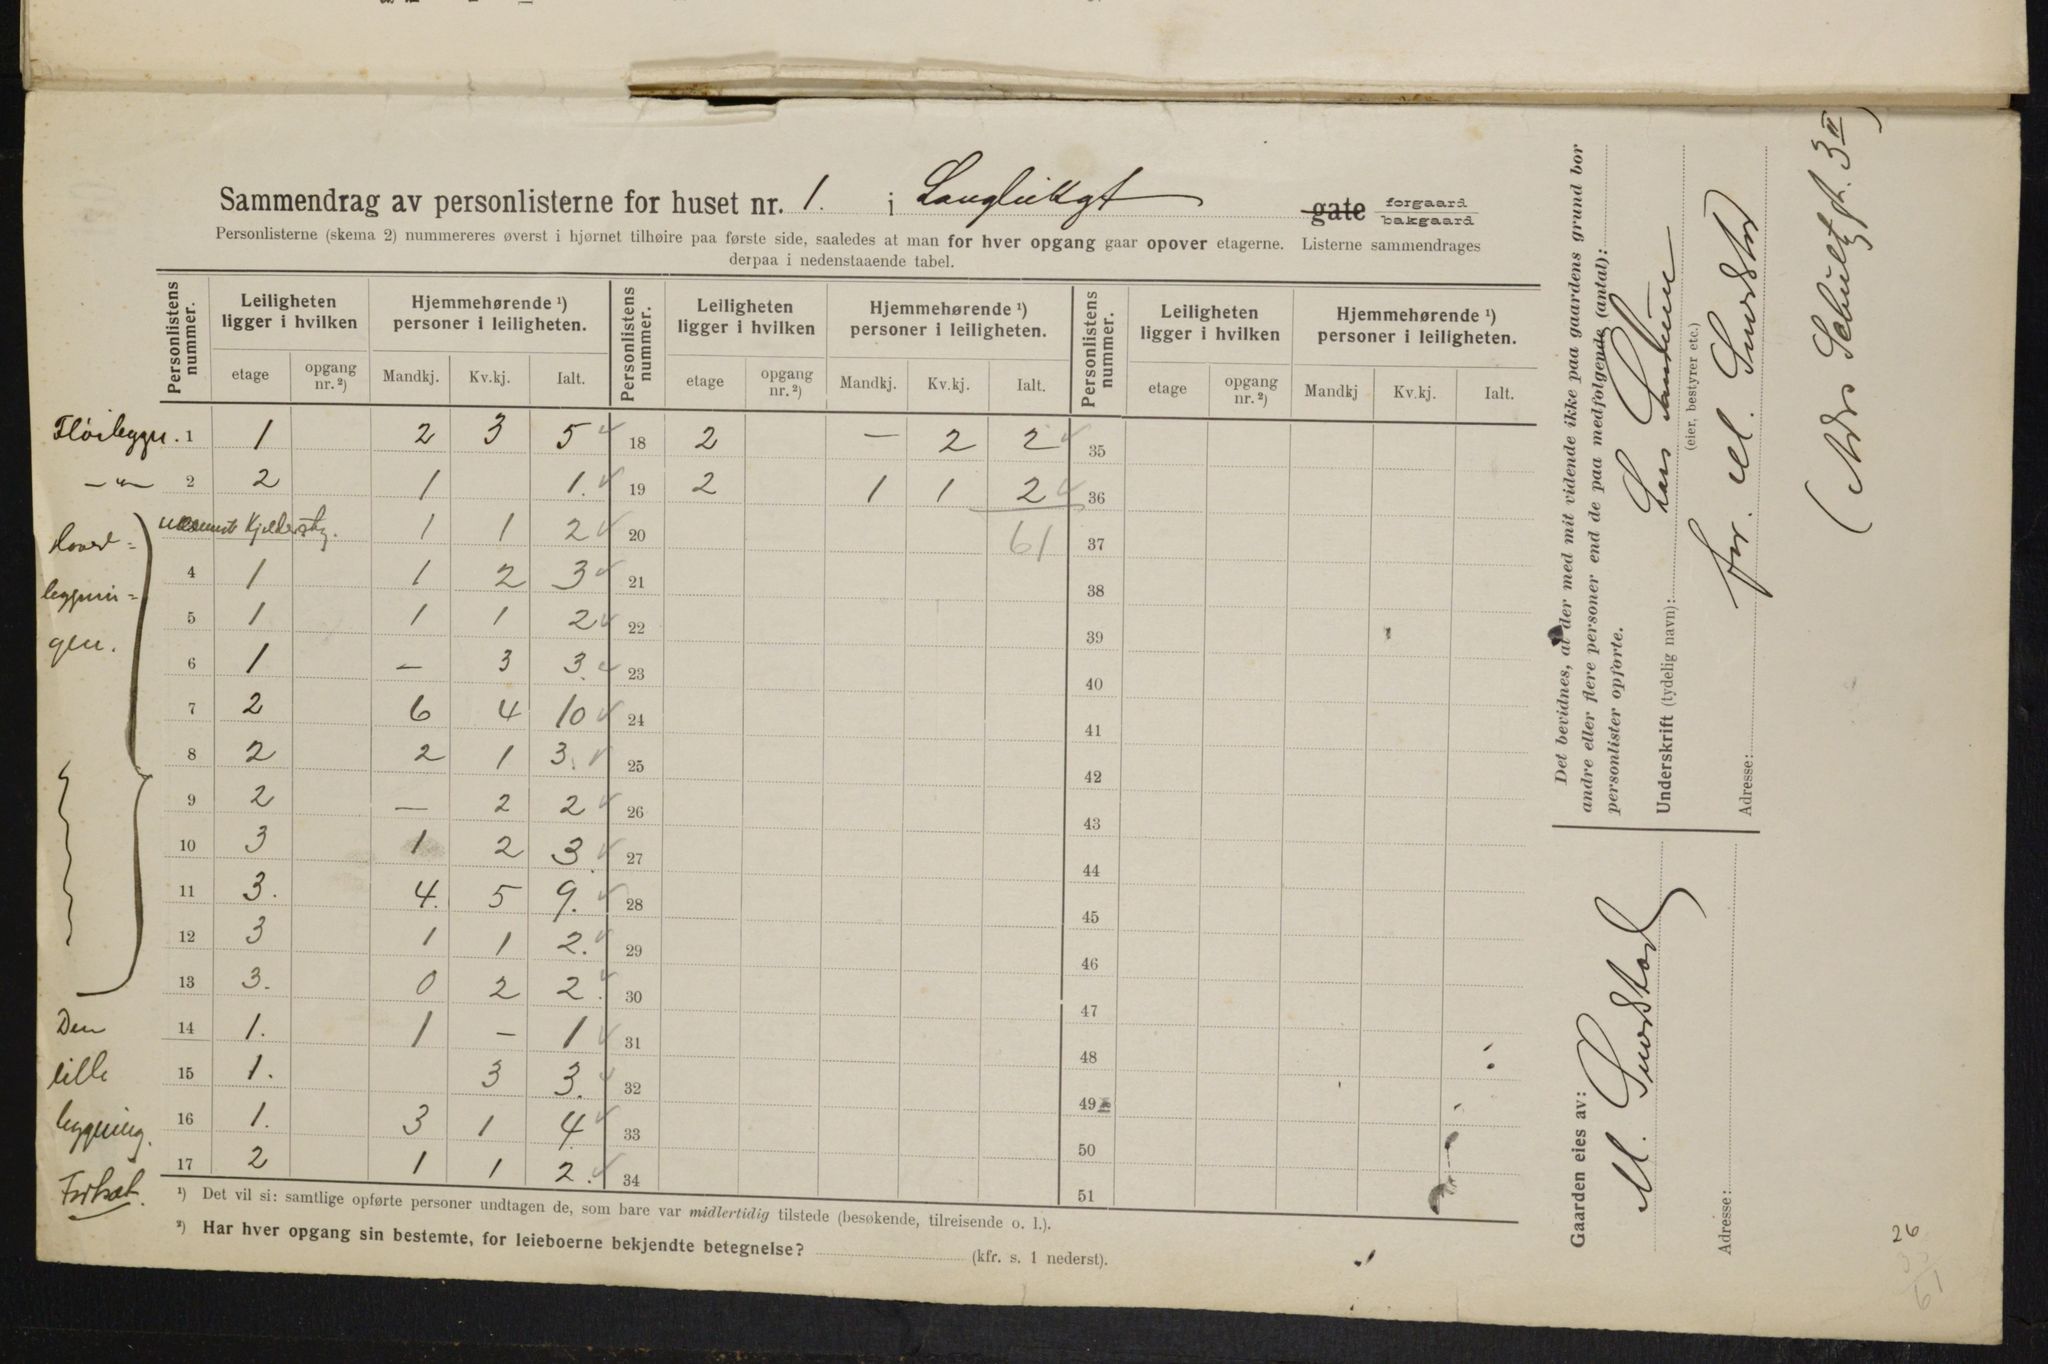 Sammendrag av personlisterne for huset nr. 1. i Langleikgt gate forgaard bakgaard
Personlisterne (skema 2) nummereres øverst i hjørnet tilhøire paa første side, saaledes at man for hver opgang gaar opover etagerne. Listerne sammendrages
derpaa i nedenstaaende tabel.
Personlistens nummer. Leiligheten ligger i hvilken Hjemmehørende ¹) personer i leiligheten. Personlistens nummer. Leiligheten ligger i hvilken Hjemmehørende ¹) personer i leiligheten. Personlistens nummer. Leiligheten ligger i hvilken Hjemmehørende ¹) personer i leiligheten.
etage opgang nr. ²) Mandkj. Kv.kj. Ialt. etage opgang nr. ²) Mandkj. Kv.kj. Ialt. etage opgang nr. ²) Mandkj Kv.kj. Ialt.
Fløibyggn. 1 1 2 3 5 18 2 — 2 2 35
—"— 2 2 1 1. 19 2 1 1 2 36
Kjelderetg. 1 1 2 20 61 37
Hoved=
4 1 1 2 3 21 38
byggnin=
5 1 1 1 2 22 39
gen.
6 1 — 3 3. 23 40
7 2 6 4 10 24 41
8 2 2 1 3. 25 42
9 2 — 2 2 26 43
10 3 1 2 3. 27 44
11 3. 4. 5 9. 28 45
12 3 1 1 2. 29 46
13 3. 0 2 2. 30 47
Den 14 1. 1 - 1 31 48
lille 15 1. 3 3. 32 49
bygning. 16 1. 3 1 4 33 50
17 2 1 1 2. 34 51
Fortsæt.
¹) Det vil si: samtlige opførte personer undtagen de, som bare var midlertidig tilstede (besøkende, tilreisende o. l.).
²) Har hver opgang sin bestemte, for leieboerne bekjendte betegnelse? (kfr. s. 1 nederst).
Det bevidnes, at der med mit vidende ikke paa gaardens grund bor
andre eller flere personer end de paa medfolgende (antal):
personlister opførte.
Underskrift (tydelig navn):
(eier, bestyrer etc.)
Adresse: for M. Snerstad
(Adr Schultzgt. 3 II)
Gaarden eies av: M. Snerstad
Adresse:
26
35
61